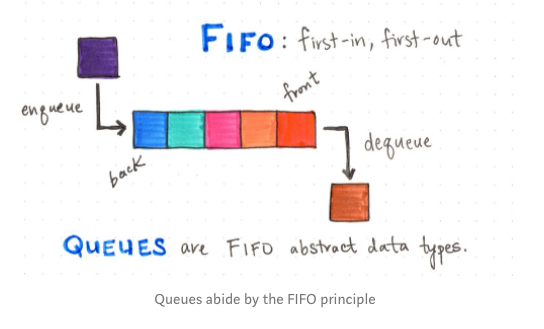 FIFO: first-in, first-out
front
enqueue
dequeue
back
QUEUES are FIFO abstract data types.
Queues abide by the FIFO principle